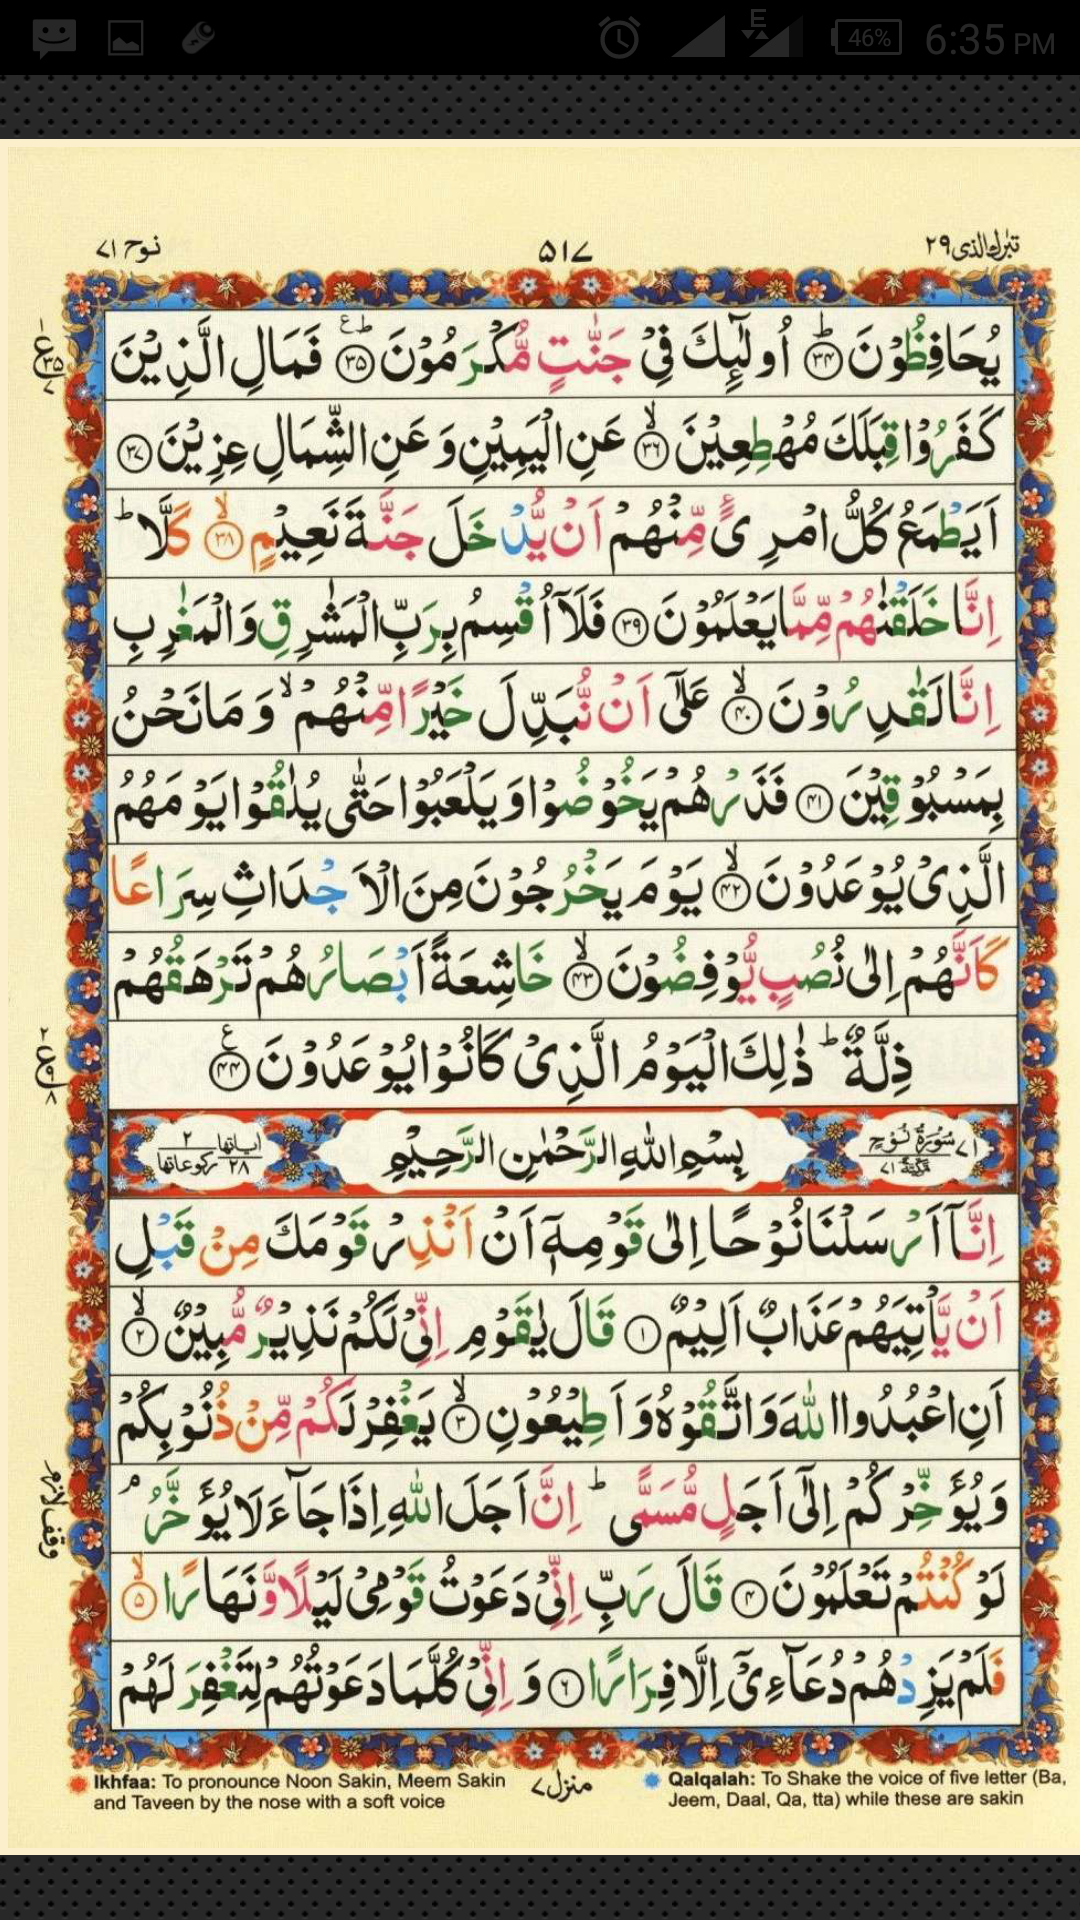 46% 6:35 PM
E
نوح ٧١ ٥١٧ تبٰرك الذى ٢٩
يُحَافِظُوْنَ ؕ﴿٣٤﴾ اُولٰٓئِكَ فِىْ جَنّٰتٍ مُّكْرَمُوْنَ ؕع﴿٣٥﴾ فَمَالِ الَّذِيْنَ
كَفَرُوْا قِبَلَكَ مُهْطِعِيْنَ ۙ﴿٣٦﴾ عَنِ الْيَمِيْنِ وَعَنِ الشِّمَالِ عِزِيْنَ ﴿٣٧﴾
اَيَطْمَعُ كُلُّ امْرِىًٔ مِّنْهُمْ اَنْ يُّدْخَلَ جَنَّةَ نَعِيْمٍ ۙ﴿٣٨﴾ كَلَّا ؕ
اِنَّا خَلَقْنٰهُمْ مِّمَّا يَعْلَمُوْنَ ﴿٣٩﴾ فَلَاۤ اُقْسِمُ بِرَبِّ الْمَشٰرِقِ وَالْمَغٰرِبِ
اِنَّا لَقٰدِرُوْنَ ۙ﴿٤٠﴾ عَلٰٓى اَنْ نُّبَدِّلَ خَيْرًا مِّنْهُمْ ۙ وَمَا نَحْنُ
بِمَسْبُوْقِيْنَ ﴿٤١﴾ فَذَرْهُمْ يَخُوْضُوْا وَيَلْعَبُوْا حَتّٰى يُلٰقُوْا يَوْمَهُمُ
الَّذِىْ يُوْعَدُوْنَ ۙ﴿٤٢﴾ يَوْمَ يَخْرُجُوْنَ مِنَ الْاَجْدَاثِ سِرَاعًا
كَاَنَّهُمْ اِلٰى نُصُبٍ يُّوْفِضُوْنَ ۙ﴿٤٣﴾ خَاشِعَةً اَبْصَارُهُمْ تَرْهَقُهُمْ
ذِلَّةٌ ؕ ذٰلِكَ الْيَوْمُ الَّذِىْ كَانُوْا يُوْعَدُوْنَ ع﴿٤٤﴾
٧١ سُوْرَةُ نُوْحٍ مكية ٧١ بِسْمِ اللهِ الرَّحْمٰنِ الرَّحِيْمِ اٰياتها ٢٨ ركوعاتها ٢
اِنَّاۤ اَرْسَلْنَا نُوْحًا اِلٰى قَوْمِهٖۤ اَنْ اَنْذِرْ قَوْمَكَ مِنْ قَبْلِ
اَنْ يَّاْتِيَهُمْ عَذَابٌ اَلِيْمٌ ﴿١﴾ قَالَ يٰقَوْمِ اِنِّىْ لَكُمْ نَذِيْرٌ مُّبِيْنٌ ۙ﴿٢﴾
اَنِ اعْبُدُوا اللّٰهَ وَاتَّقُوْهُ وَاَطِيْعُوْنِ ۙ﴿٣﴾ يَغْفِرْ لَكُمْ مِّنْ ذُنُوْبِكُمْ
وَيُؤَخِّرْكُمْ اِلٰٓى اَجَلٍ مُّسَمًّى ؕ اِنَّ اَجَلَ اللّٰهِ اِذَا جَآءَ لَا يُؤَخَّرُ ۘ
لَوْ كُنْتُمْ تَعْلَمُوْنَ ﴿٤﴾ قَالَ رَبِّ اِنِّىْ دَعَوْتُ قَوْمِىْ لَيْلًا وَّنَهَارًا ۙ﴿٥﴾
فَلَمْ يَزِدْهُمْ دُعَآءِىْۤ اِلَّا فِرَارًا ﴿٦﴾ وَاِنِّىْ كُلَّمَا دَعَوْتُهُمْ لِتَغْفِرَ لَهُمْ
وقف لازم
Ikhfaa: To pronounce Noon Sakin, Meem Sakin
and Taveen by the nose with a soft voice
منزل ٧
Qalqalah: To Shake the voice of five letter (Ba,
Jeem, Daal, Qa, tta) while these are sakin